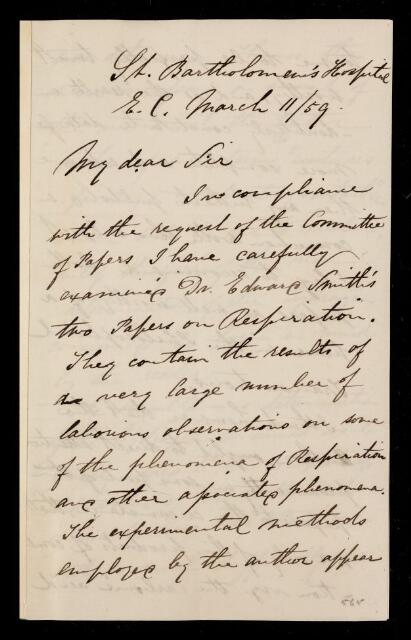 St. Bartholomew's Hospital
E.C. March 11/59.
My dear Sir
In compliance
with the request of the Committee
of Papers I have carefully
examined Dr. Edward Smith's
two Papers on Respiration.
They contain the results of
a very large number of
laborious observations on some
of the phenomena of Respiration
and other associated phenomena.
The experimental methods
employed by the author appear